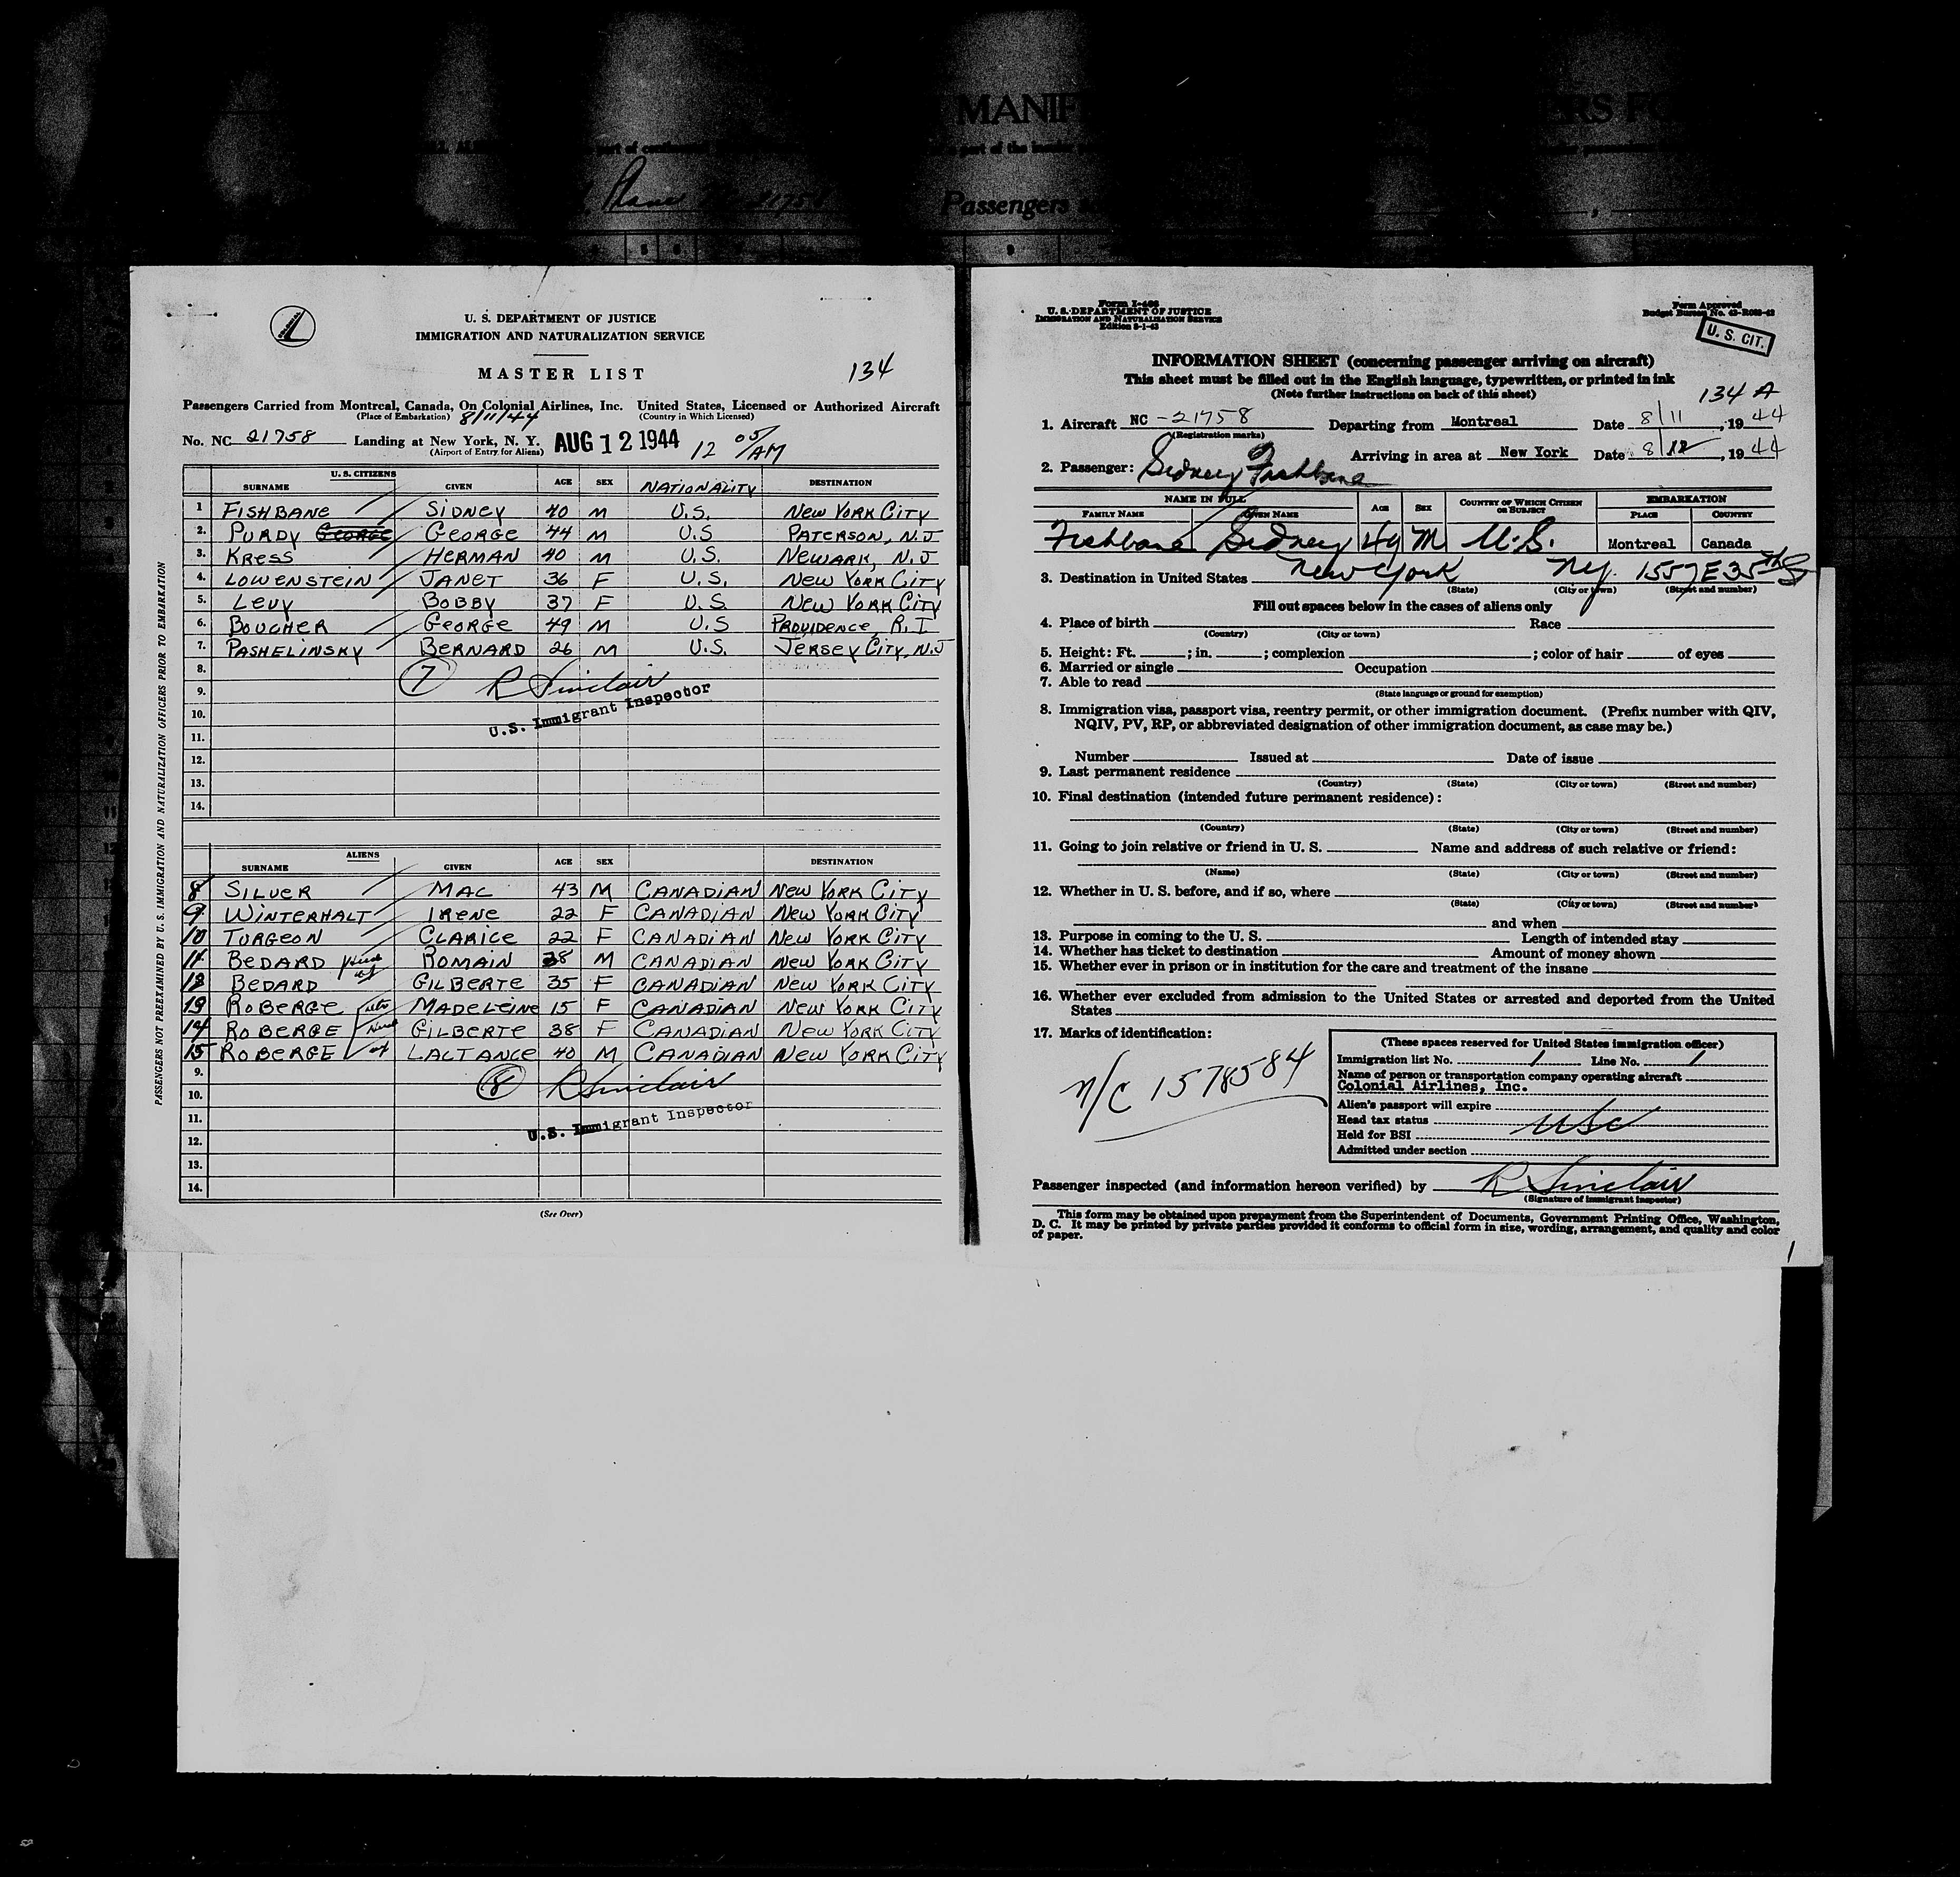 MANIF
ERS FO
part of the
Plane No. 21758
Passengers
U. S. DEPARTMENT OF JUSTICE
IMMIGRATION AND NATURALIZATION SERVICE
MASTER LIST
134
Passengers Carried from Montreal, Canada, On Colonial Airlines, Inc. United States, Licensed or Authorized Aircraft
(Place of Embarkation) 8/11/44 (Country in Which Licensed)
No. NC 21758 Landing at New York, N. Y. AUG 12 1944 12 05/AM
(Airport of Entry for Aliens)
U. S. CITIZENS
SURNAME GIVEN AGE SEX NATIONALITY DESTINATION
1 FISHBANE SIDNEY 40 M U.S. NEW YORK CITY
2. PURDY GEORGE GEORGE 44 M U.S PATERSON, N.J
3. KRESS HERMAN 40 M U.S. NEWARK, N.J
4. LOWENSTEIN JANET 36 F U.S. NEW YORK CITY
5. LEVY BOBBY 37 F U.S. NEW YORK CITY
6. BOUCHER GEORGE 49 M U.S PROVIDENCE, R.I
7. PASHELINSKY BERNARD 26 M U.S. JERSEY CITY, N.J
8. 7 R Sinclair
9. U.S. Immigrant Inspector
10.
11.
12.
13.
14.
ALIENS
SURNAME GIVEN AGE SEX DESTINATION
8 SILVER MAC 43 M CANADIAN NEW YORK CITY
9 WINTERHALT IRENE 22 F CANADIAN NEW YORK CITY
10 TURGEON CLARICE 22 F CANADIAN NEW YORK CITY
11 BEDARD ROMAIN 38 M CANADIAN NEW YORK CITY
12 BEDARD GILBERTE 35 F CANADIAN NEW YORK CITY
13 ROBERGE MADELEINE 15 F CANADIAN NEW YORK CITY
14 ROBERGE GILBERTE 38 F CANADIAN NEW YORK CITY
15 ROBERGE LACTANCE 40 M CANADIAN NEW YORK CITY
9.
10. 8 R Sinclair
11. U.S. Immigrant Inspector
12.
13.
14.
(See Over)
PASSENGERS NOT PREEXAMINED BY U. S. IMMIGRATION AND NATURALIZATION OFFICERS PRIOR TO EMBARKATION
Form I-466
U. S. DEPARTMENT OF JUSTICE
IMMIGRATION AND NATURALIZATION SERVICE
Edition 8-1-43
Form Approved
Budget Bureau No. 43-R083-43
U. S. CIT.
INFORMATION SHEET (concerning passenger arriving on aircraft)
This sheet must be filled out in the English language, typewritten, or printed in ink
(Note further instructions on back of this sheet)
134 A
1. Aircraft NC -21758 Departing from Montreal Date 8/11, 1944
(Registration marks)
Arriving in area at New York Date 8/12, 1944
2. Passenger: Sidney Fishbane
NAME IN FULL AGE SEX COUNTRY OF WHICH CITIZEN OR SUBJECT EMBARKATION
FAMILY NAME GIVEN NAME PLACE COUNTRY
Fishbane Sidney 49 M U.S. Montreal Canada
3. Destination in United States New York N.Y. 1557 E 35th S
(State) (City or town) (Street and number)
Fill out spaces below in the cases of aliens only
4. Place of birth Race
(Country) (City or town)
5. Height: Ft. ; in. ; complexion ; color of hair of eyes
6. Married or single Occupation
7. Able to read
(State language or ground for exemption)
8. Immigration visa, passport visa, reentry permit, or other immigration document. (Prefix number with QIV,
NQIV, PV, RP, or abbreviated designation of other immigration document, as case may be.)
Number Issued at Date of issue
9. Last permanent residence
(Country) (State) (City or town) (Street and number)
10. Final destination (intended future permanent residence):
(Country) (State) (City or town) (Street and number)
11. Going to join relative or friend in U. S. Name and address of such relative or friend:
(Name) (State) (City or town) (Street and number)
12. Whether in U. S. before, and if so, where
(State) (City or town) (Street and number)
and when
13. Purpose in coming to the U. S. Length of intended stay
14. Whether has ticket to destination Amount of money shown
15. Whether ever in prison or in institution for the care and treatment of the insane
16. Whether ever excluded from admission to the United States or arrested and deported from the United
States
17. Marks of identification:
n/c 1578584
(These spaces reserved for United States immigration officer)
Immigration list No. 1 Line No. 1
Name of person or transportation company operating aircraft
Colonial Airlines, Inc.
Alien's passport will expire
Head tax status USC
Held for BSI
Admitted under section
Passenger inspected (and information hereon verified) by R Sinclair
(Signature of immigrant inspector)
This form may be obtained upon prepayment from the Superintendent of Documents, Government Printing Office, Washington,
D. C. It may be printed by private parties provided it conforms to official form in size, wording, arrangement, and quality and color
of paper.
1